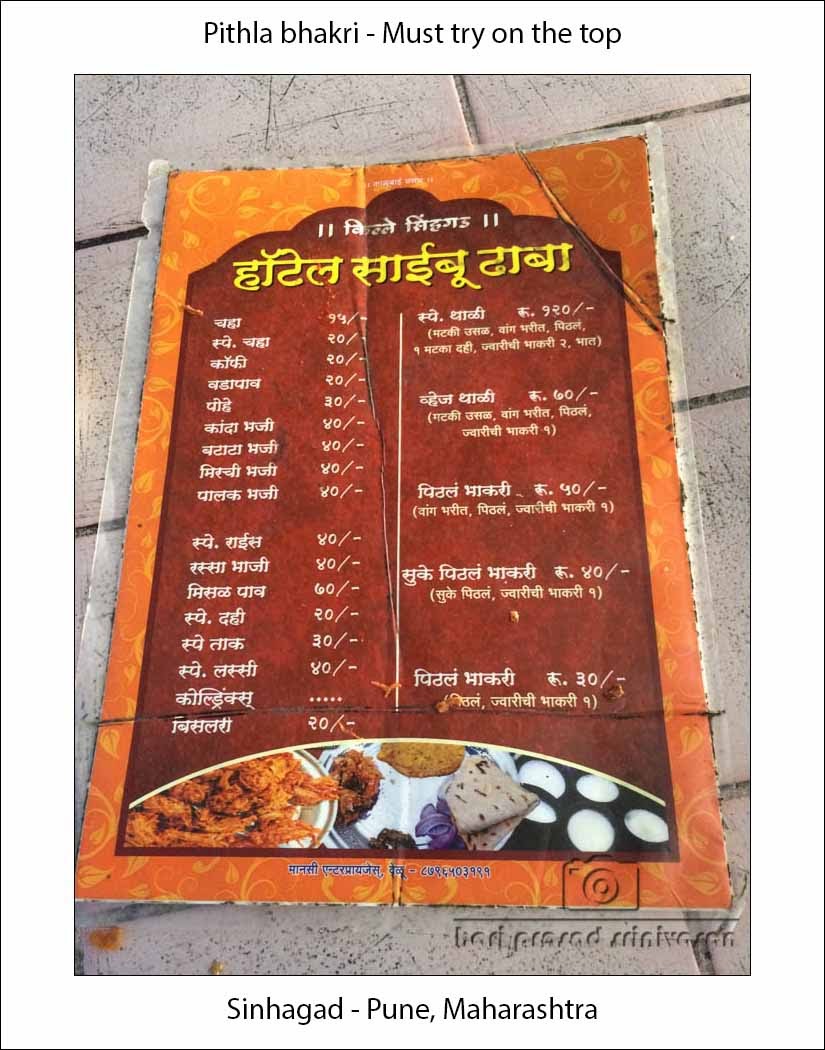 Pithla bhakri - Must try on the top
॥ काळुबाई प्रसन्न ॥
॥ किल्ले सिंहगड ॥
हॉटेल साईबू ढाबा
चहा १५/-
स्पे. चहा २०/-
कॉफी २०/-
वडापाव २०/-
पोहे ३०/-
कांदा भजी ४०/-
बटाटा भजी ४०/-
मिरची भजी ४०/-
पालक भजी ४०/-
स्पे. राईस ४०/-
रस्सा भाजी ४०/-
मिसळ पाव ७०/-
स्पे. दही २०/-
स्पे ताक ३०/-
स्पे. लस्सी ४०/-
कोल्ड्रिंक्स् .....
बिसलरी २०/-
स्पे. थाळी रू. १२०/-
(मटकी उसळ, वांग भरीत, पिठलं,
१ मटका दही, ज्वारीची भाकरी २, भात)
व्हेज थाळी रू. ७०/-
(मटकी उसळ, वांग भरीत, पिठलं,
ज्वारीची भाकरी १)
पिठलं भाकरी रू. ५०/-
(वांग भरीत, पिठलं, ज्वारीची भाकरी १)
सुके पिठलं भाकरी रू. ४०/-
(सुके पिठलं, ज्वारीची भाकरी १)
पिठलं भाकरी रू. ३०/-
(पिठलं, ज्वारीची भाकरी १)
मानसी एन्टरप्रायजेस्, वेळू - ८७९६५०३१९१
hari prasad srinivasan
Sinhagad - Pune, Maharashtra